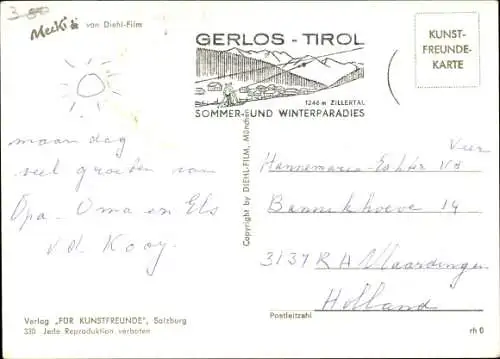 3-50
Mecki von Diehl-Film
GERLOS - TIROL
1246 m ZILLERTAL
SOMMER- UND WINTERPARADIES
KUNST-
FREUNDE-
KARTE
maandag
veel groeten van
Opa. Oma en Els
v.d. Kooy.
Copyright by DIEHL-FILM, München
Hannemarie
Bannikhoeve 14
3137 RA Vlaardingen
Holland
Postleitzahl
Verlag „FÜR KUNSTFREUNDE", Salzburg
330 Jede Reproduktion verboten
rh 0